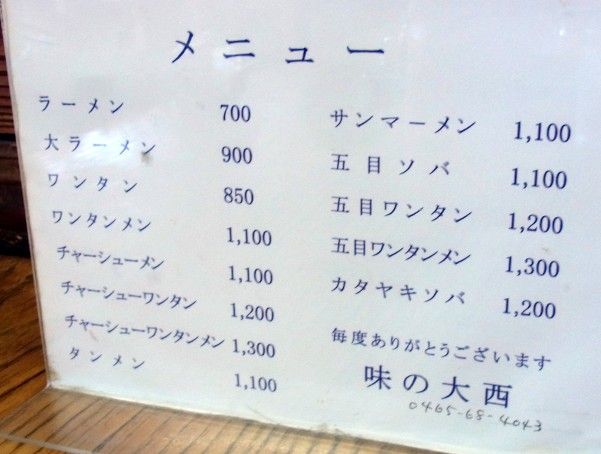 メニュー
ラーメン 700
大ラーメン 900
ワンタン 850
ワンタンメン 1,100
チャーシューメン 1,100
チャーシューワンタン 1,200
チャーシューワンタンメン 1,300
タンメン 1,100
サンマーメン 1,100
五目ソバ 1,100
五目ワンタン 1,200
五目ワンタンメン 1,300
カタヤキソバ 1,200
毎度ありがとうございます
味の大西
0465-68-4043